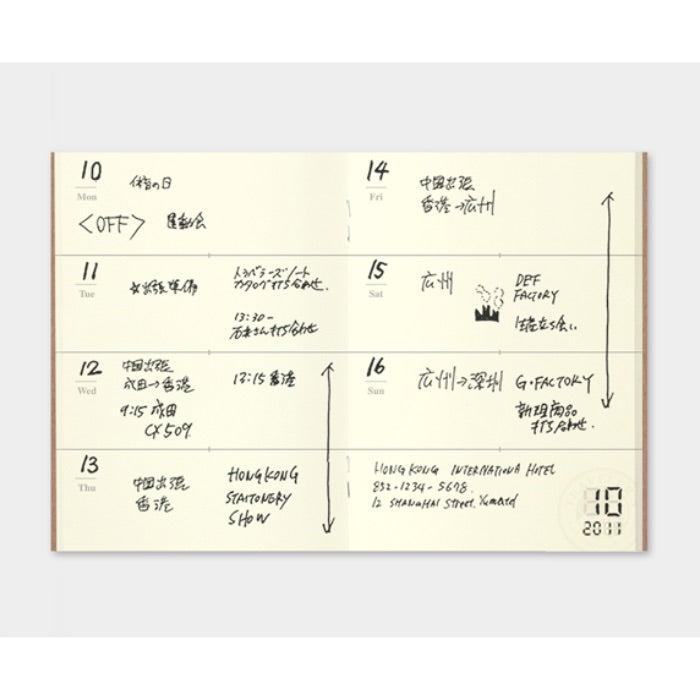 10
Mon
体育の日
<OFF> 運動会
11
Tue
出張準備
トラベラーズノート
カタログ打ち合わせ.
13:30-
さん打ち合わせ
12
Wed
中国出張
成田→香港
9:15 成田
CX509
13:15 香港
13
Thu
中国出張
香港
HONG KONG
STATIONERY
SHOW
14
Fri
中国出張
香港→広州
15
Sat
広州
DEF
FACTORY
立ち会い
16
Sun
広州→深圳
G・FACTORY
新理商品
打ち合わせ.
HONG KONG INTERNATIONA HOTEL
852-1234-5678.
12 SHANGHAI Street.
10
2011